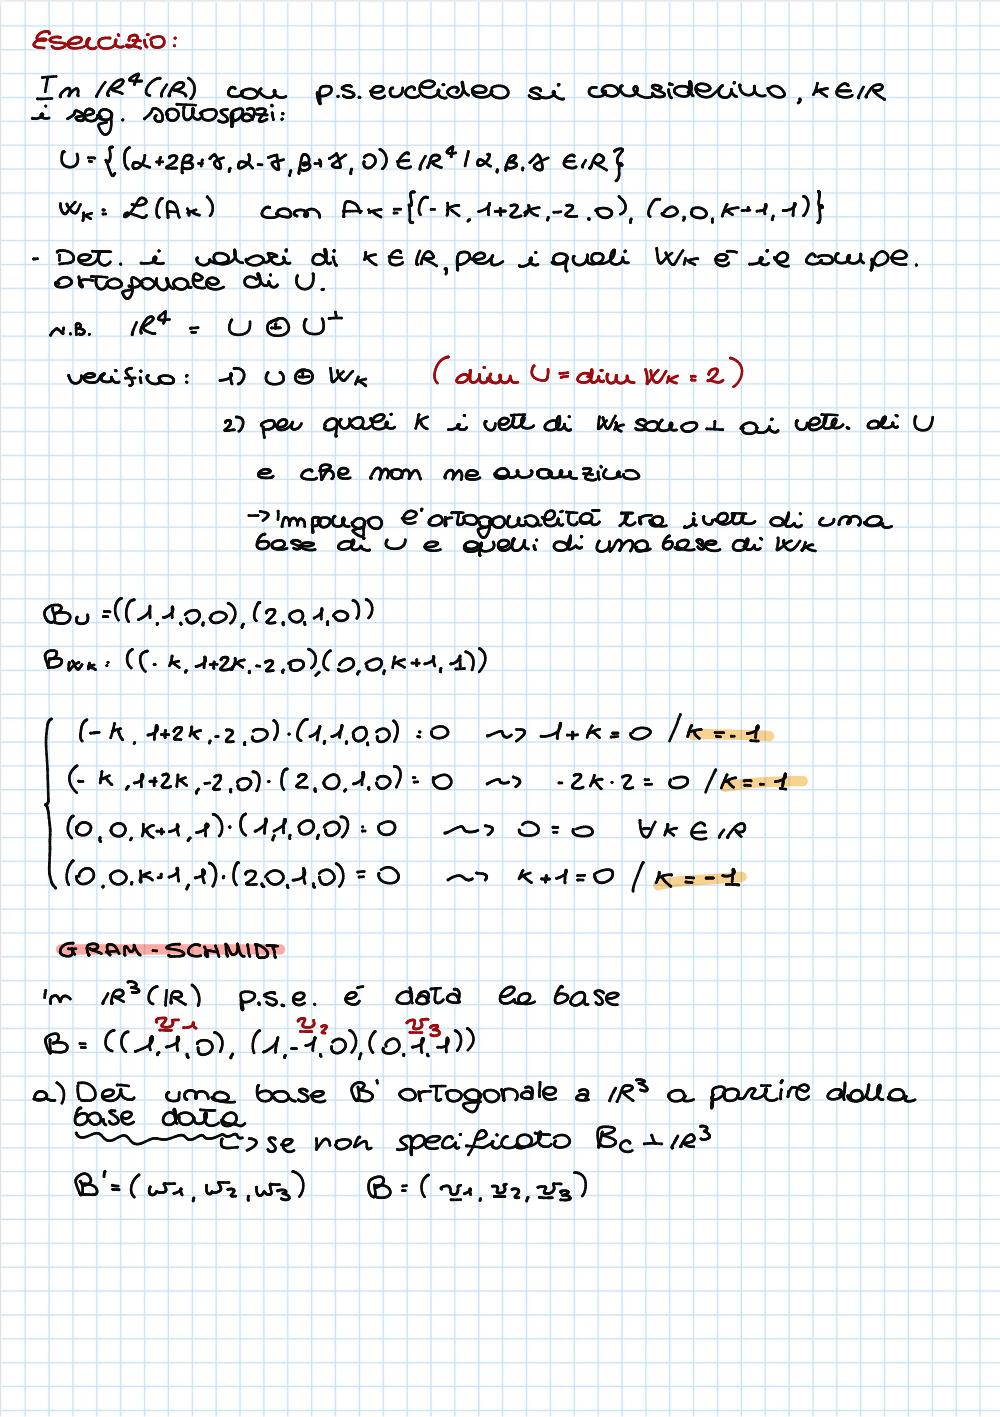 Esercizio:
In IR⁴(IR) con p.s. euclideo si considerino, K∈IR
i seg. sottospazi:
U={(α+2β+γ, α-γ, β+γ, 0) ∈ IR⁴ | α, β, γ ∈ IR}
Wκ: L(Aκ) com Aκ={(-K, 1+2K, -2, 0), (0, 0, K+1, 1)}
- Det. i valori di K∈IR, per i quali Wκ è il compl.
ortogonale di U.
N.B. IR⁴ = U ⊕ U⊥
verifico: 1) U ⊕ Wκ (dim U = dim Wκ = 2)
2) per quali K i vett di Wκ sono ⊥ ai vett. di U
e che non ne avanzino
→ Impongo l'ortogonalità tra i vett di una
base di U e quelli di una base di Wκ
Bᴜ =((1,1,0,0), (2,0,1,0))
Bwκ: ((-K, 1+2K, -2, 0), (0, 0, K+1, 1))
(-K, 1+2K, -2, 0)·(1,1,0,0) = 0 ~> 1+K = 0 / K = -1
(-K, 1+2K, -2, 0)·(2,0,1,0) = 0 ~> -2K·2 = 0 / K = -1
(0,0,K+1,1)·(1,1,0,0) = 0 ~> 0 = 0 ∀K∈IR
(0,0,K+1,1)·(2,0,1,0) = 0 ~> K+1 = 0 / K = -1
GRAM-SCHMIDT
In IR³(IR) p.s.e. è data la base
v1 v2 v3
B = ((1,1,0), (1,-1,0), (0,1,1))
a) Det una base B' ortogonale a IR³ a partire dalla
base data
↳ se non specificato Bc ⊥ IR³
B' = (w1, w2, w3) B = (v1, v2, v3)